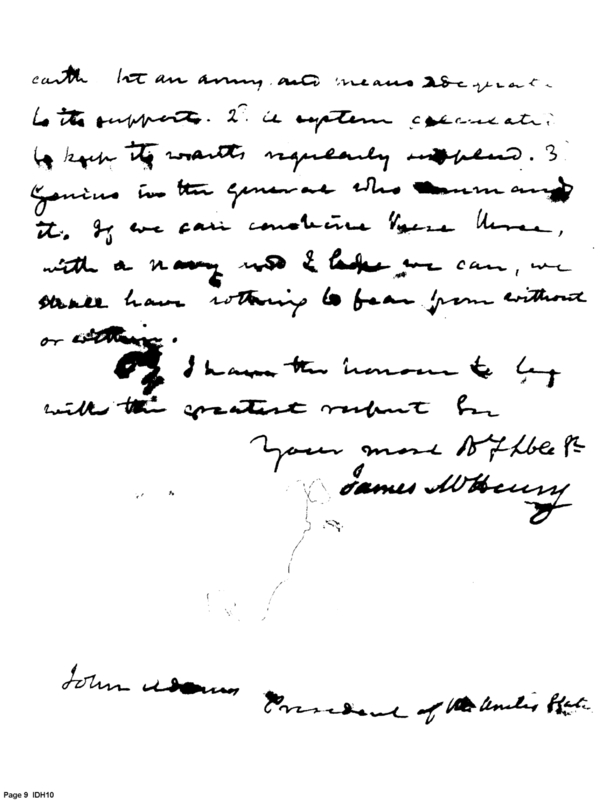 earth 1st an army and means adequate
to its support. 2d. a system calculated
to keep its wants regularly supplied. 3
Genius in the general who command
it. If we can combine these three,
with a navy and I hope we can, we
shall have nothing to fear from without
or within.
I have the honour to be
with the greatest respect Sir
Your most Obt & hble St
James McHenry
John Adams
President of the United States
Page 9 IDH10